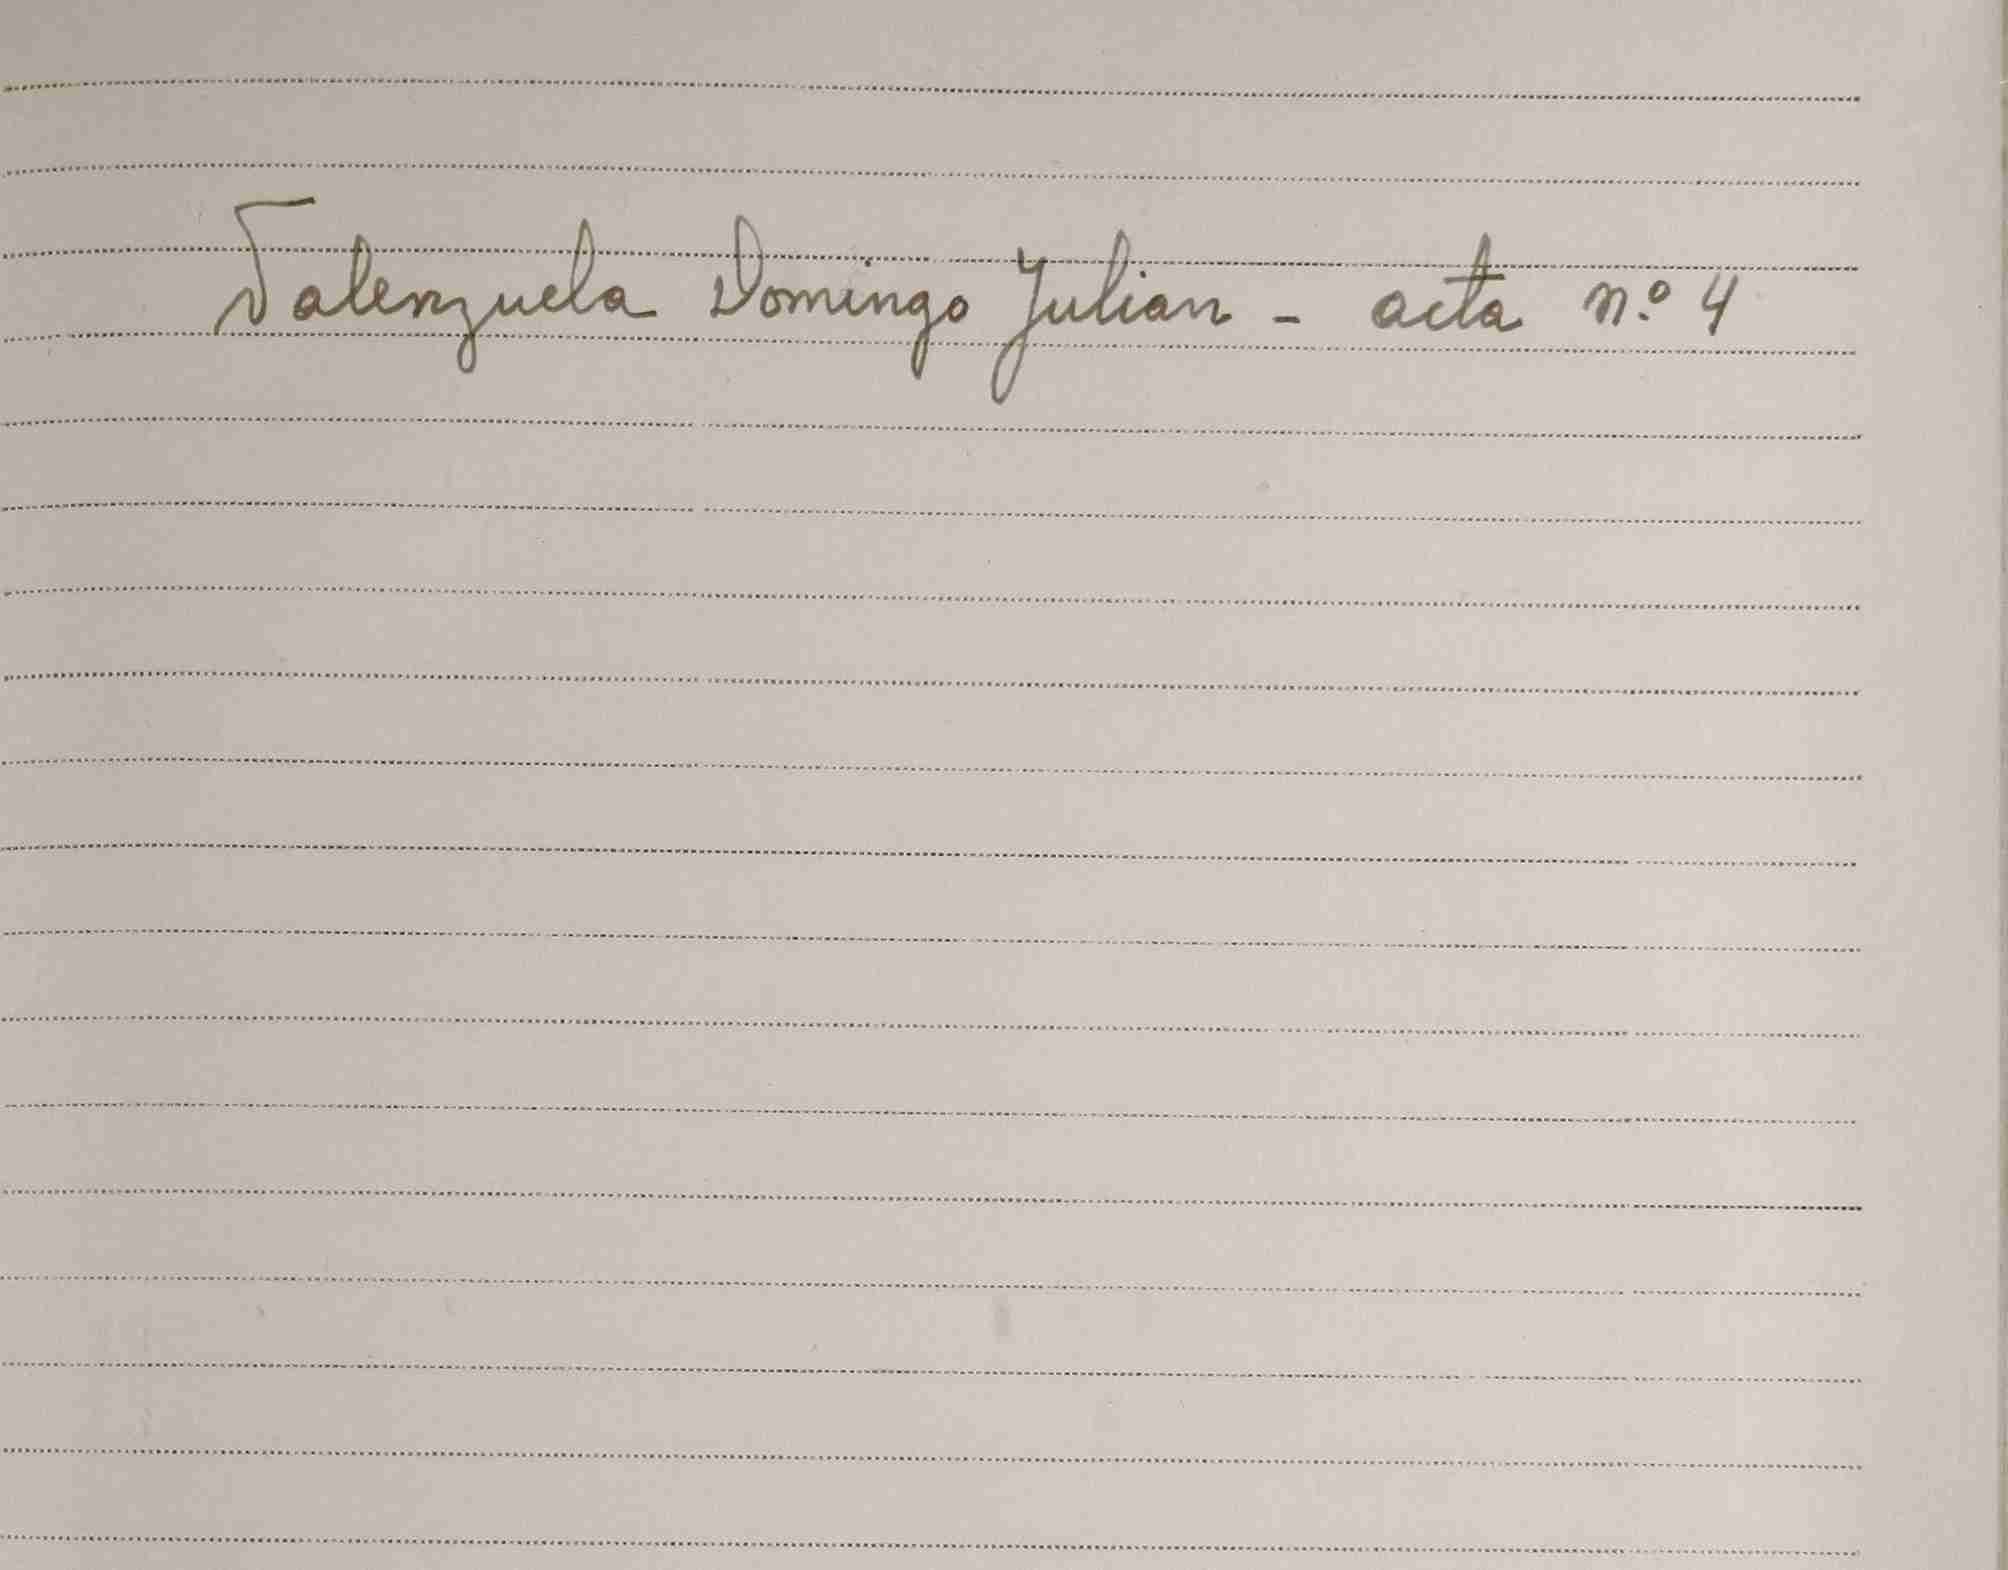 Valenzuela Domingo Julian - acta n.º 4